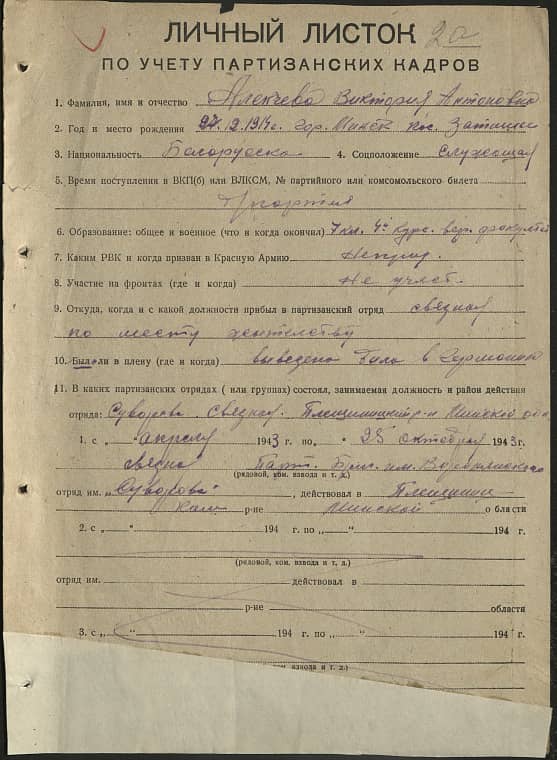 ЛИЧНЫЙ ЛИСТОК 2а
ПО УЧЕТУ ПАРТИЗАНСКИХ КАДРОВ
1. Фамилия, имя и отчество Виктория Антоновна
2. Год и место рождения 2.1914г. гор. Минск пос.
3. Национальность Белорусска 4. Соцположение Служащая
5. Время поступления в ВКП(б) или ВЛКСМ, № партийного или комсомольского билета
6. Образование: общее и военное (что и когда окончил) 7 кл. 4 курс.
7. Каким РВК и когда призван в Красную Армию
8. Участие на фронтах (где и когда) Не участ.
9. Откуда, когда и с какой должности прибыл в партизанский отряд связная
по месту жительству
10. Был ли в плену (где и когда) выведена была в Германию
11. В каких партизанских отрядах (или группах) состоял, занимаемая должность и район действия
отряда: Суворова связная. Плещиницкий р-н Минской обл
1. с „ “ апреля 1943 г. по „ 25 октября 1943 г.
связная Парт. Бриг. им.
(рядовой, ком. взвода и т. д.)
отряд им. „Суворова“, действовал в Плещини
р-не Минской области
2. с „ “ 194 г. по „ “ 194 г.
(рядовой, ком. взвода и т. д.)
отряд им. действовал в
р-не области
3. с „ “ 194 г. по „ “ 194 г.
взвода и т. д.)